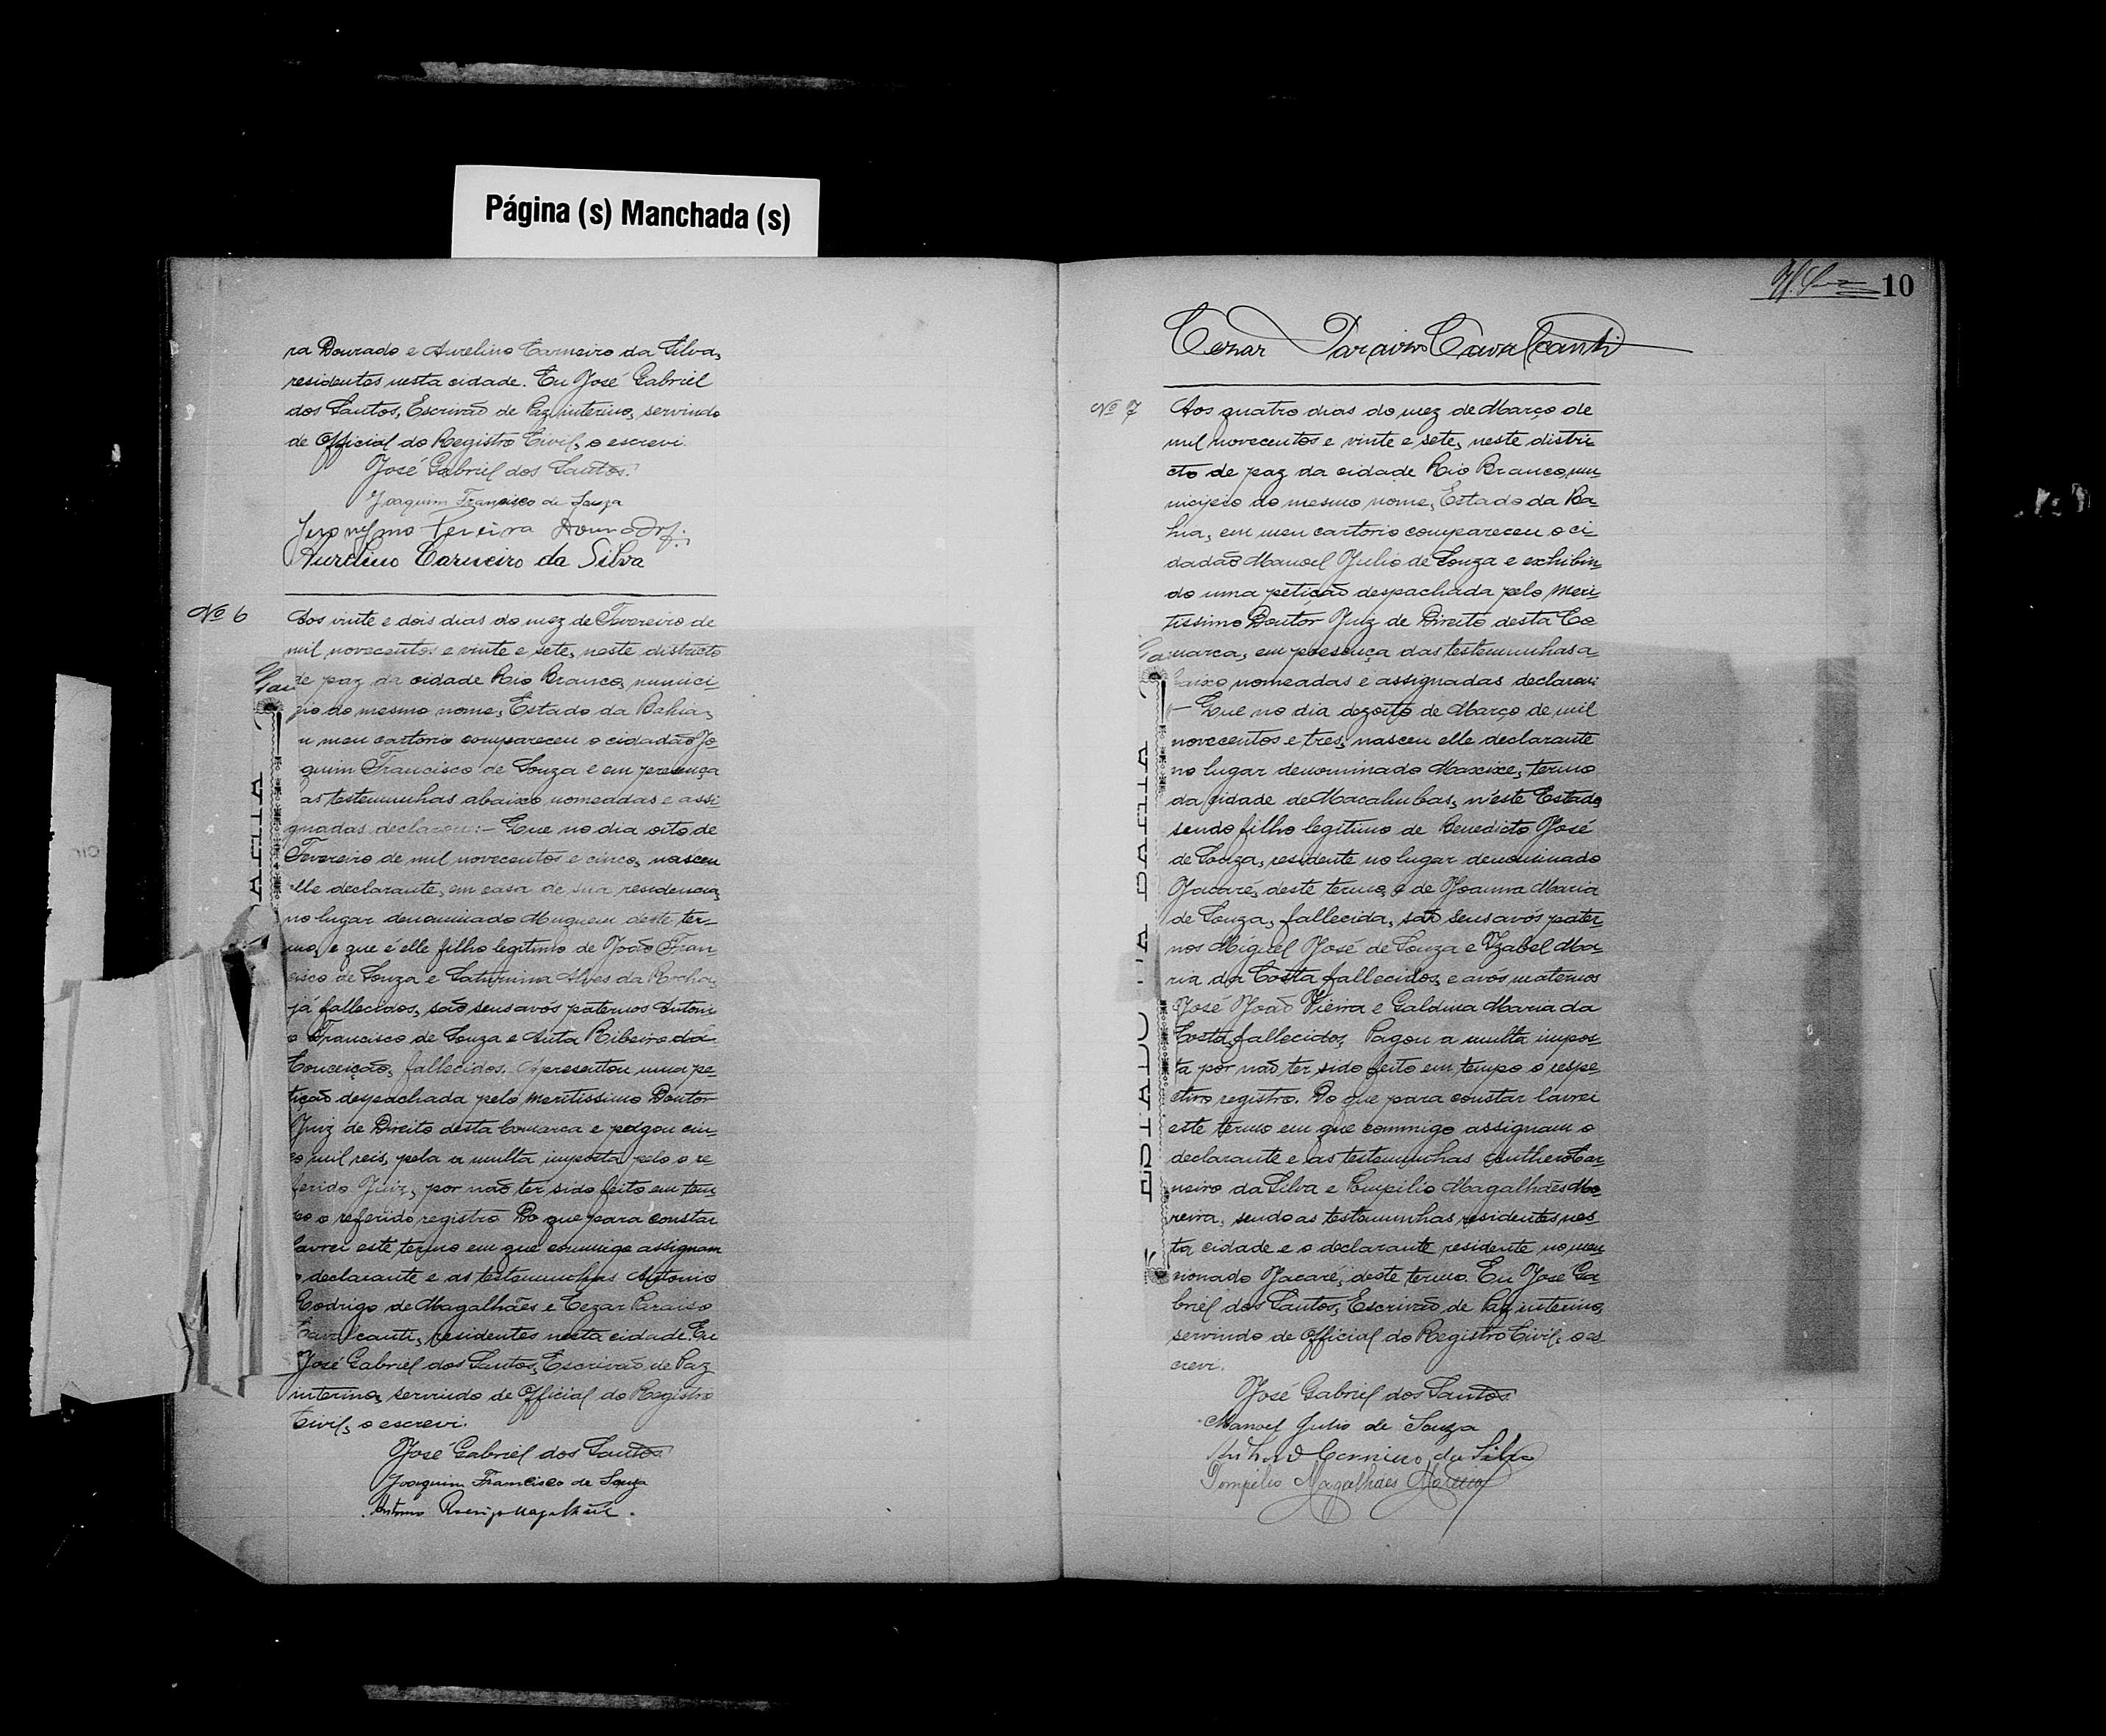 Página (s) Manchada (s)
ra Dourado e Aurelino Carneiro da Silva,
residentes nesta cidade. Eu José Gabriel
dos Santos, Escrivão de Paz interino, servindo
de Official do Registro Civil, o escrevi.
José Gabriel dos Santos.
Joaquim Francisco de Souza
Jeronymo Pereira Dourado
Aurelino Carneiro da Silva
Nº 6
Aos vinte e dois dias do mez de Fevereiro de
mil novecentos e vinte e sete, neste districto
de paz da cidade Rio Branco, munici-
pio do mesmo nome, Estado da Bahia,
meu cartorio compareceu o cidadão Jo-
quim Francisco de Souza e em presença
as testemunhas abaixo nomeadas e assi-
gnadas declarou:- Que no dia oito de
Fevereiro de mil novecentos e cinco, nasceu
elle declarante, em casa de sua residencia,
no lugar denominado Muquem deste ter-
mo, e que é elle filho legitimo de João Fran-
cisco de Souza e Saturnina Alves da Rocha,
já fallecidos, são seus avós paternos Antoni
o Francisco de Souza e Anta Ribeiro da
Conceição, fallecidos. Apresentou uma pe-
tição despachada pelo meritissimo Doutor
Juiz de Direito desta Comarca e pagou cin-
co mil reis, pela a multa imposta pelo o re-
ferido Juiz, por não ter sido feito em tem
po o referido registro. Do que para constar
lavrei este termo em que commigo assignam
o declarante e as testemunhas Antonio
Rodrigo de Magalhães e Cezar Paraiso
Cavalcanti, residentes nesta cidade. Eu
José Gabriel dos Santos, Escrivão de Paz
interino, servindo de Official do Registro
Civil, o escrevi.
José Gabriel dos Santos
Joaquim Francisco de Souza
Antonio Rodrigo Magalhães
10
Cezar Paraizo Cavalcanti
Nº 7
Aos quatro dias do mez de Março de
mil novecentos e vinte e sete, neste distri-
cto de paz da cidade Rio Branco, mu-
nicipio do mesmo nome, Estado da Ba-
hia, em meu cartorio compareceu o ci-
dadão Manoel Julio de Souza e exhibin-
do uma petição despachada pelo Meri-
tissimo Doutor Juiz de Direito desta Co
marca, em presença das testemunhas a-
baixo nomeadas e assignadas declarou
- Que no dia dezoito de Março de mil
novecentos e tres, nasceu elle declarante
no lugar denominado Maxixe, termo
da cidade de Macahubas, n'este Estado
sendo filho legitimo de Benedicto José
de Souza, residente no lugar denominado
Jacaré, deste termo, e de Joanna Maria
de Souza, fallecida, são seus avós pater
nos Miguel José de Souza e Izabel Ma-
ria da Costa fallecidos, e avós maternos
José João Vieira e Galdina Maria da
Costa, fallecidos. Pagou a multa impos-
ta por não ter sido feito em tempo o respe
ctivo registro. Do que para constar lavrei
este termo em que commigo assignam o
declarante e as testemunhas Anthero Car-
neiro da Silva e Pompilio Magalhães Mo-
reira, sendo as testemunhas residentes nes-
ta cidade e o declarante residente no men
cionado Jacaré, deste termo. Eu José Ga
briel dos Santos, Escrivão de Paz interino,
servindo de Official do Registro Civil, o es
crevi.
José Gabriel dos Santos
Manoel Julio de Souza
Anthero Carneiro da Silva
Pompilio Magalhães Moreira